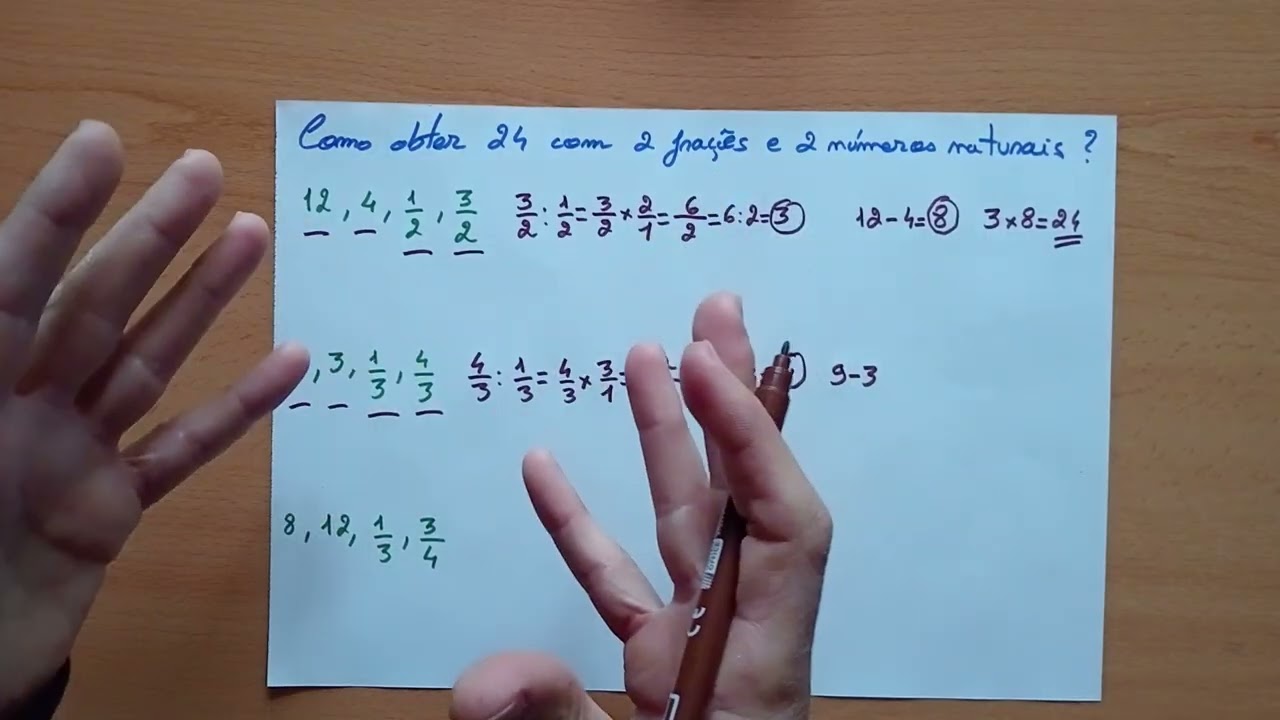 Como obter 24 com 2 frações e 2 números naturais ?
12 , 4 , 1/2 , 3/2   3/2 : 1/2 = 3/2 × 2/1 = 6/2 = 6:2= 3   12-4= 8   3×8=24
, 3 , 1/3 , 4/3   4/3 : 1/3 = 4/3 × 3/1 =   9-3
8 , 12 , 1/3 , 3/4
CE